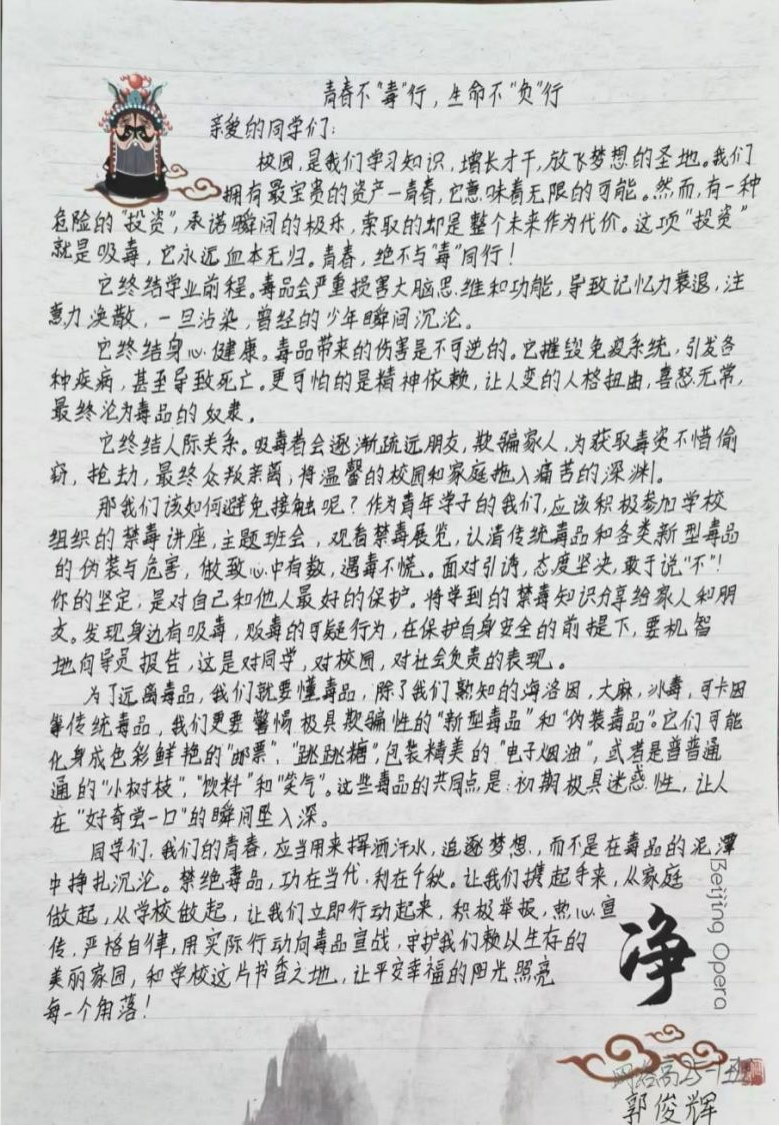 青春不"毒"行，生命不"负"行
亲爱的同学们：
校园，是我们学习知识，增长才干，放飞梦想的圣地。我们
拥有最宝贵的资产一青春，它意味着无限的可能。然而，有一种
危险的"投资"，承诺瞬间的极乐，索取的却是整个未来作为代价。这项"投资"
就是吸毒，它永远血本无归。青春，绝不与"毒"同行！
它终结学业前程。毒品会严重损害大脑思维和功能，导致记忆力衰退，注
意力涣散，一旦沾染，曾经的少年瞬间沉沦。
它终结身心健康。毒品带来的伤害是不可逆的。它摧毁免疫系统，引发各
种疾病，甚至导致死亡。更可怕的是精神依赖，让人变的人格扭曲，喜怒无常，
最终沦为毒品的奴隶。
它终结人际关系。吸毒者会逐渐疏远朋友，欺骗家人，为获取毒资不惜偷
窃，抢劫，最终众叛亲离，将温馨的校园和家庭拖入痛苦的深渊。
那我们该如何避免接触呢？作为青年学子的我们，应该积极参加学校
组织的禁毒讲座，主题班会，观看禁毒展览，认清传统毒品和各类新型毒品
的伪装与危害，做致心中有数，遇毒不慌。面对引诱，态度坚决，敢于说"不"！
你的坚定，是对自己和他人最好的保护。将学到的禁毒知识分享给家人和朋
友。发现身边有吸毒，贩毒的可疑行为，在保护自身安全的前提下，要机智
地向导员报告，这是对同学，对校园，对社会负责的表现。
为了远离毒品，我们就要懂毒品，除了我们熟知的海洛因，大麻，冰毒，可卡因
等传统毒品，我们更要警惕极具欺骗性的"新型毒品"和"伪装毒品"。它们可能
化身成色彩鲜艳的"邮票"、"跳跳糖"，包装精美的"电子烟油"，或者是普普通
通的"小树枝"，"饮料"和"笑气"。这些毒品的共同点是：初期极具迷惑性，让人
在"好奇尝一口"的瞬间坠入深。
同学们，我们的青春，应当用来挥洒汗水，追逐梦想，而不是在毒品的泥潭
中挣扎沉沦。禁绝毒品，功在当代，利在千秋。让我们携起手来，从家庭
做起，从学校做起，让我们立即行动起来，积极举报，热心宣
传，严格自律，用实际行动向毒品宣战，守护我们赖以生存的
美丽家园，和学校这片书香之地，让平安幸福的阳光照亮
每一个角落！
净
Beijing Opera
网络高25-1班
郭俊辉